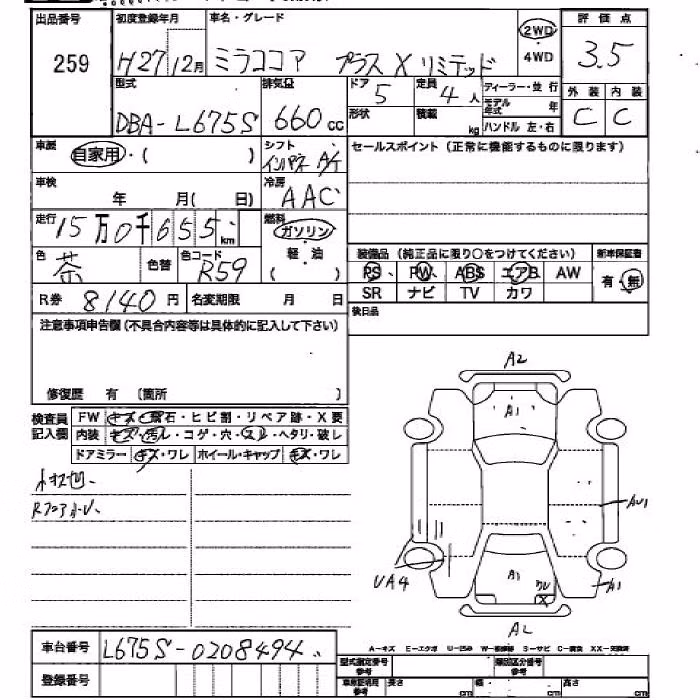 出品番号 初度登録年月 車名・グレード 評価点
259 H27年12月 ミラココア プラスX リミテッド 2WD 4WD 3.5
型式 排気量 ドア 5 定員 4人 ディーラー・並行 外装 内装
DBA-L675S 660cc 形状 積載 kg モデル年式 年 ハンドル 左・右 C C
車歴 自家用・( ) シフト インパネA/T セールスポイント(正常に機能するものに限ります)
車検 年 月( 日) 冷房 AAC
走行 15万0千655km 燃料 ガソリン
軽・油
( )
装備品(純正品に限り○をつけてください) 新車保証書
色 茶 色替 色コード R59 PS PW ABS エアB AW 有・無
R券 8140円 名変期限 月 日 SR ナビ TV カワ
後日品
注意事項申告欄(不具合内容等は具体的に記入して下さい)
修復歴 有 〔箇所 〕
検査員記入欄 FW キズ・飛石・ヒビ割・リペア跡・X要
内装 キズ・汚レ・コゲ・穴・スレ・ヘタリ・破レ
ドアミラー キズ・ワレ ホイール・キャップ キズ・ワレ
A2
A1
AU1
UA4
A1
A1
車台番号 L675S-0208494
登録番号
A-キズ E-エクボ U-凹み W-補修跡 S-サビ C-腐食 XX-交換済
型式指定番号 参考 類別区分番号 参考
車庫証明用 参考 長さ cm 幅 cm 高さ cm